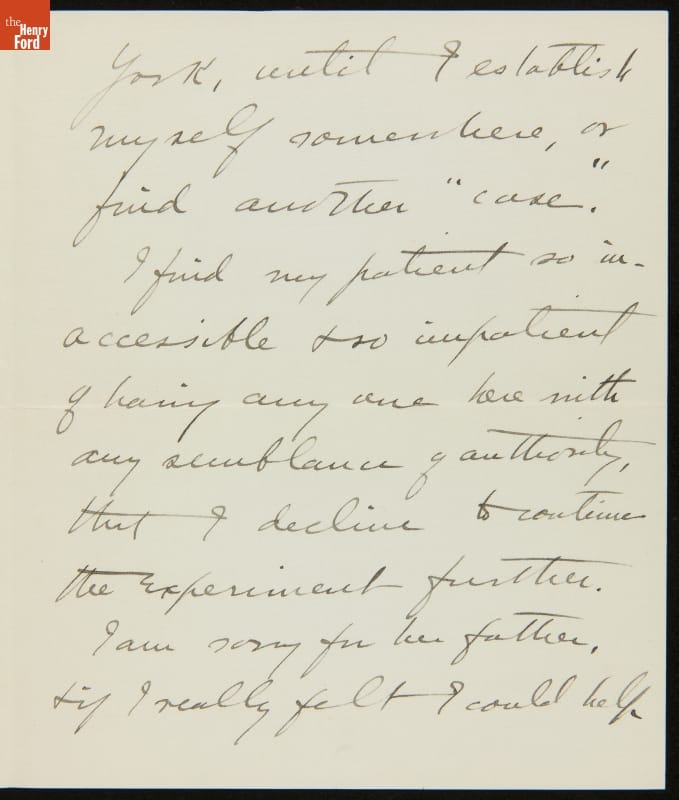 the
Henry
Ford
York, until I establish
myself somewhere, or
find another "case".
I find my patient so in-
accessible & so impatient
of having any one here with
any semblance of authority,
that I decline to continue
the experiment further.
I am sorry for her father,
& if I really felt I could help